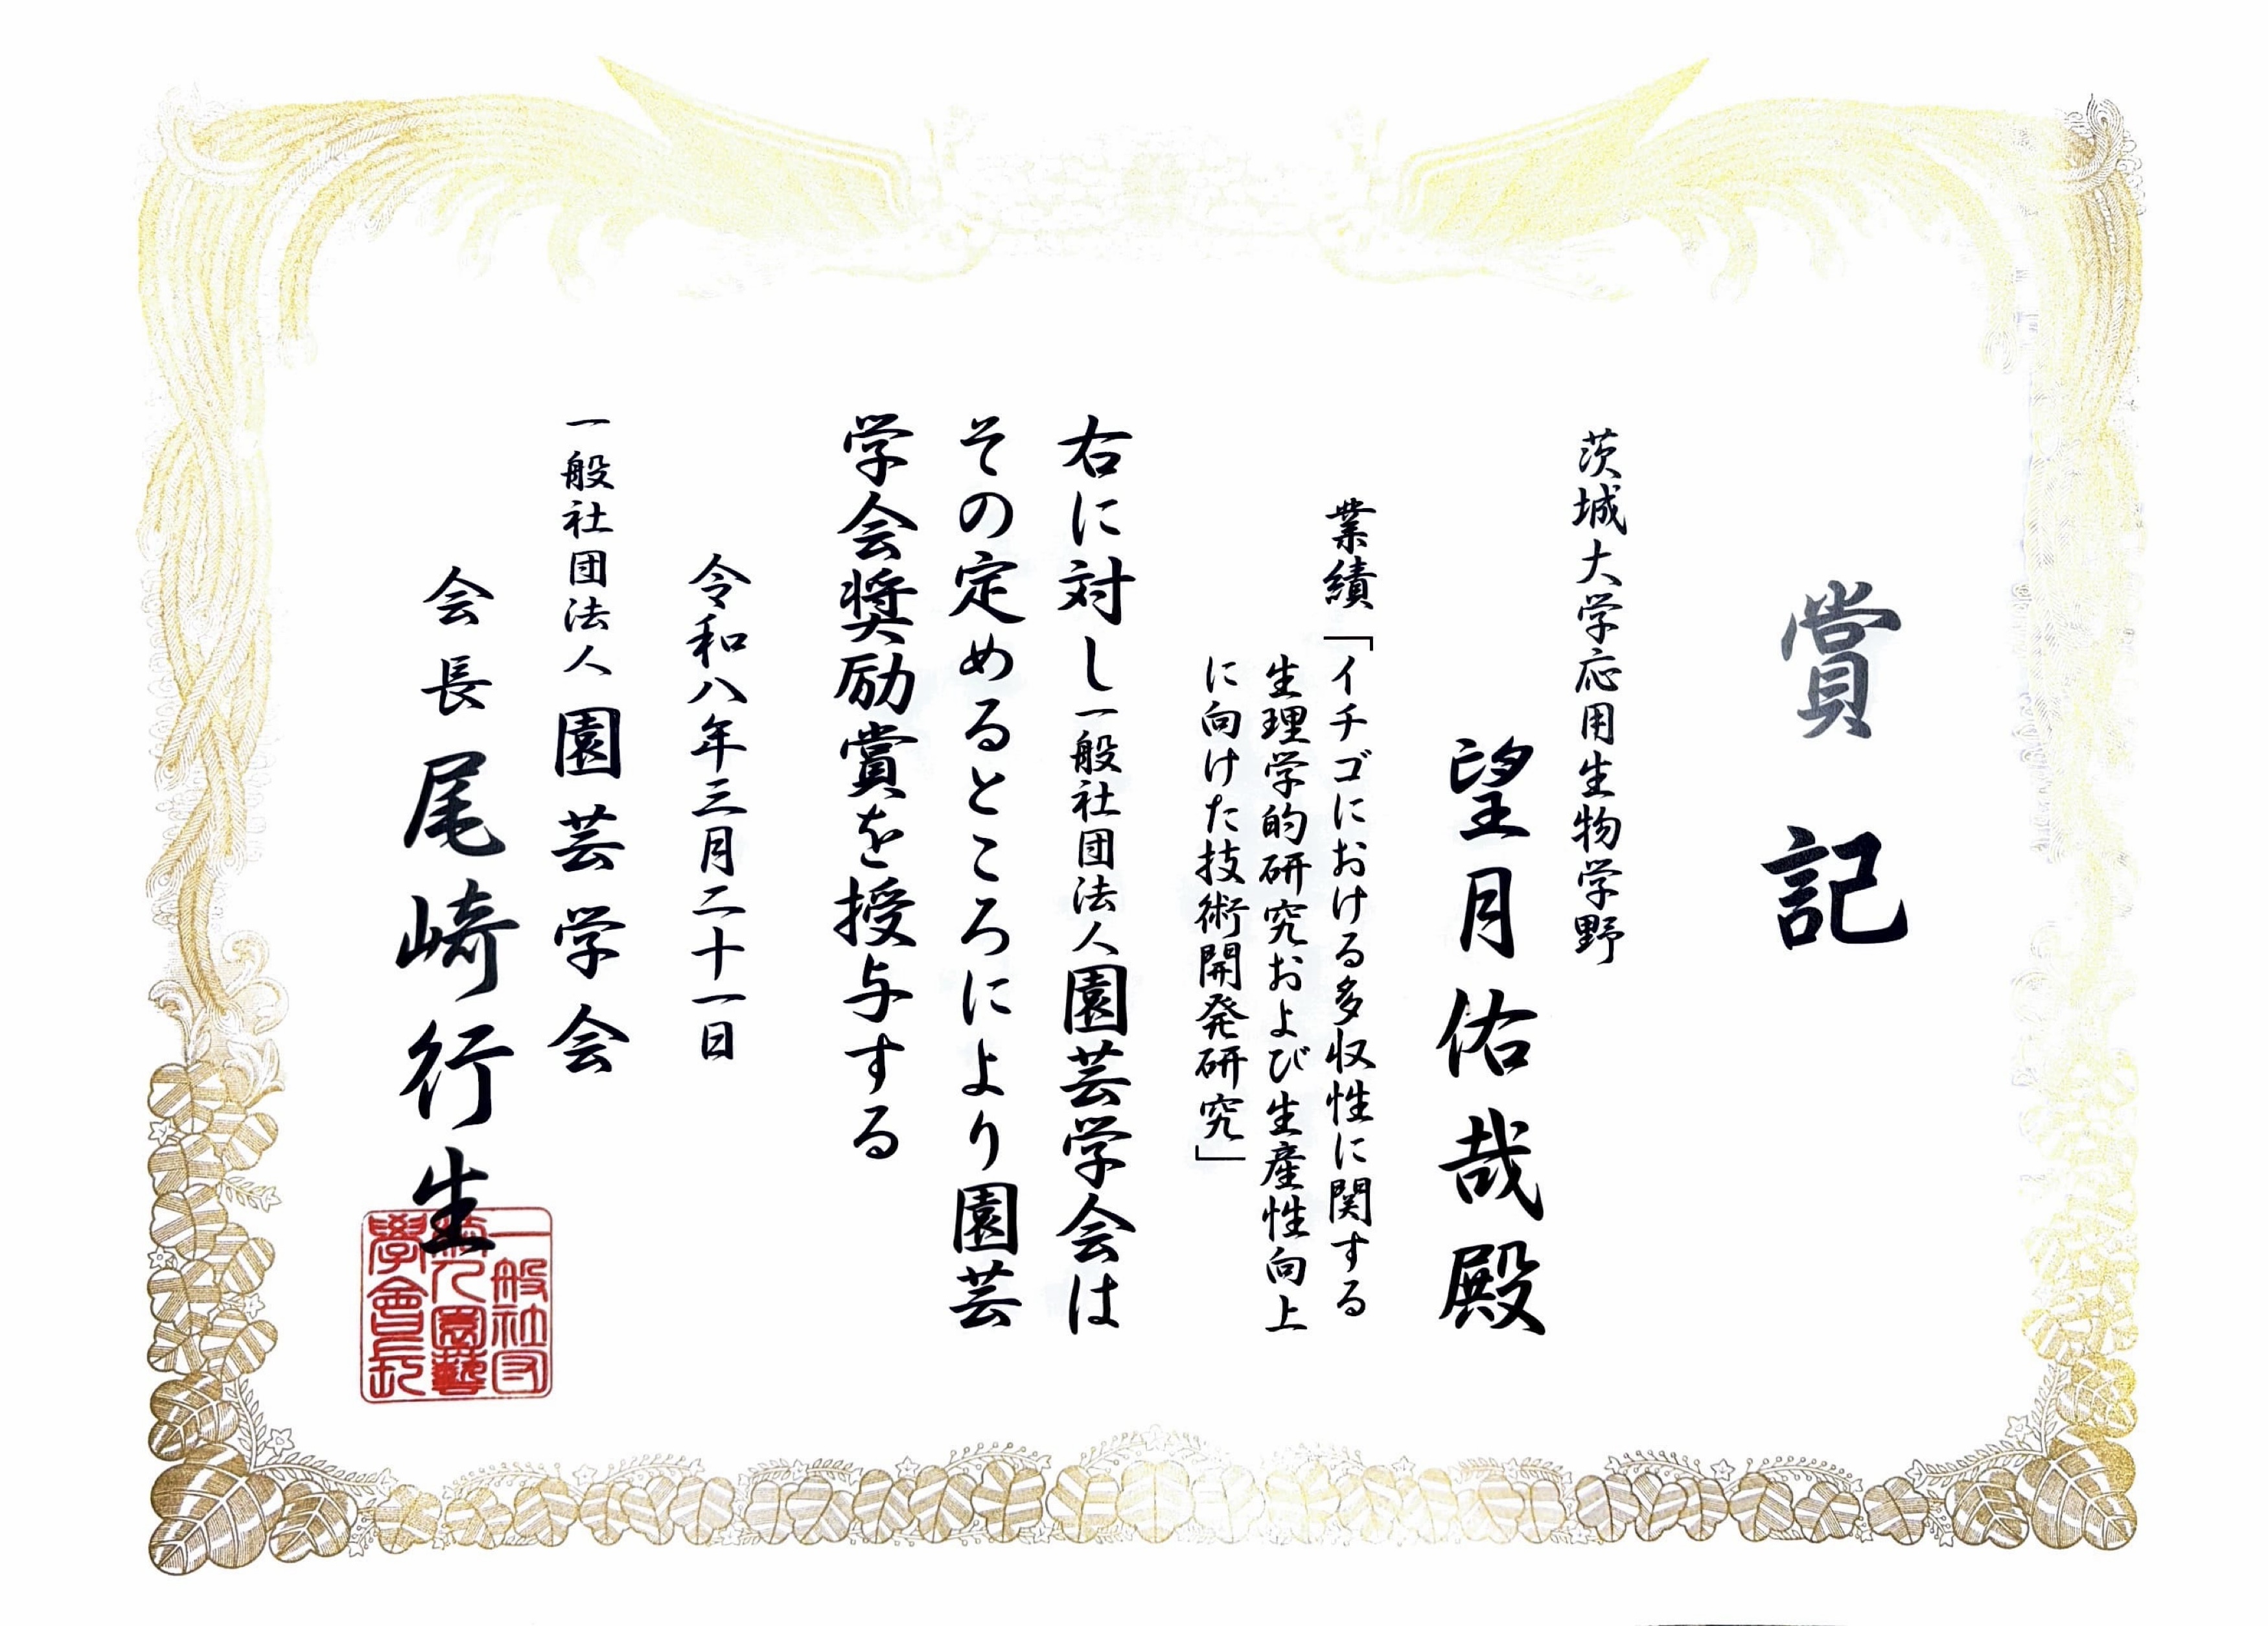 賞記
茨城大学応用生物学野
望月佑哉殿
業績「イチゴにおける多収性に関する
生理学的研究および生産性向上
に向けた技術開発研究」
右に対し一般社団法人園芸学会は
その定めるところにより園芸
学会奨励賞を授与する
令和八年三月二十一日
一般社団法人園芸学会
会長尾崎行生
一般社団
法人園藝
學會長